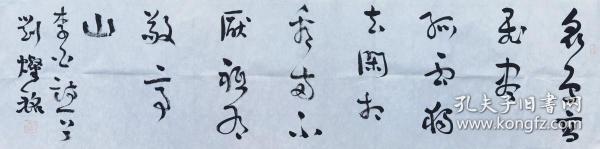 众鸟高
飞尽
孤云独
去闲相
看两不
厌只有
敬亭
山
李白诗一首
刘灿铭
孔夫子旧书网
www.kongfz.com